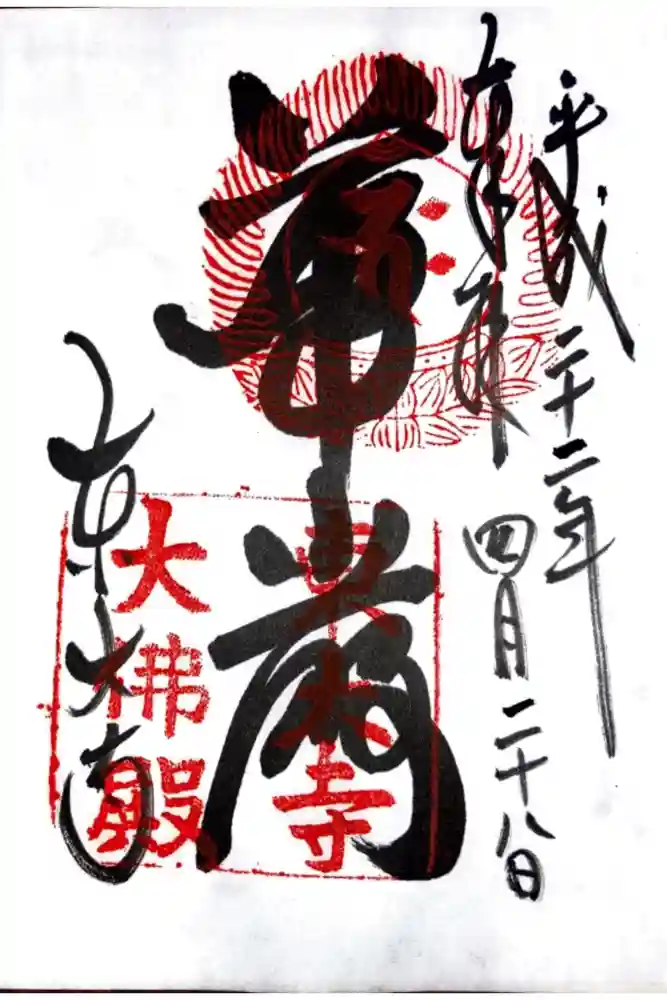 平成二十二年
奉拝
四月二十八日
華嚴
東大寺
東大寺
大佛殿